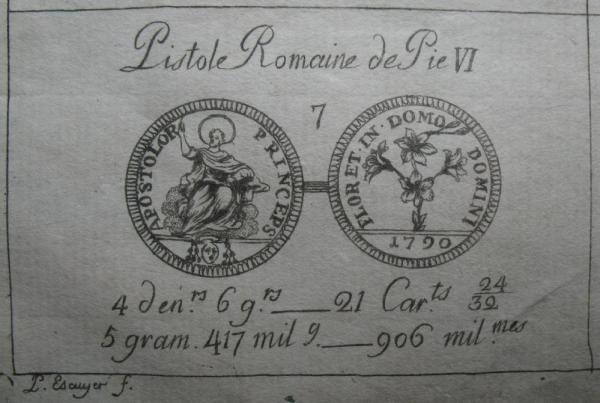 Pistole Romaine de Pie VI
7
APOSTOLOR PRINCEPS
FLORET · IN · DOMO DOMINI
1790
4 den.rs 6 g.rs — 21 Car.ts 24/32
5 gram. 417 mil g. — 906 mil.mes
f.